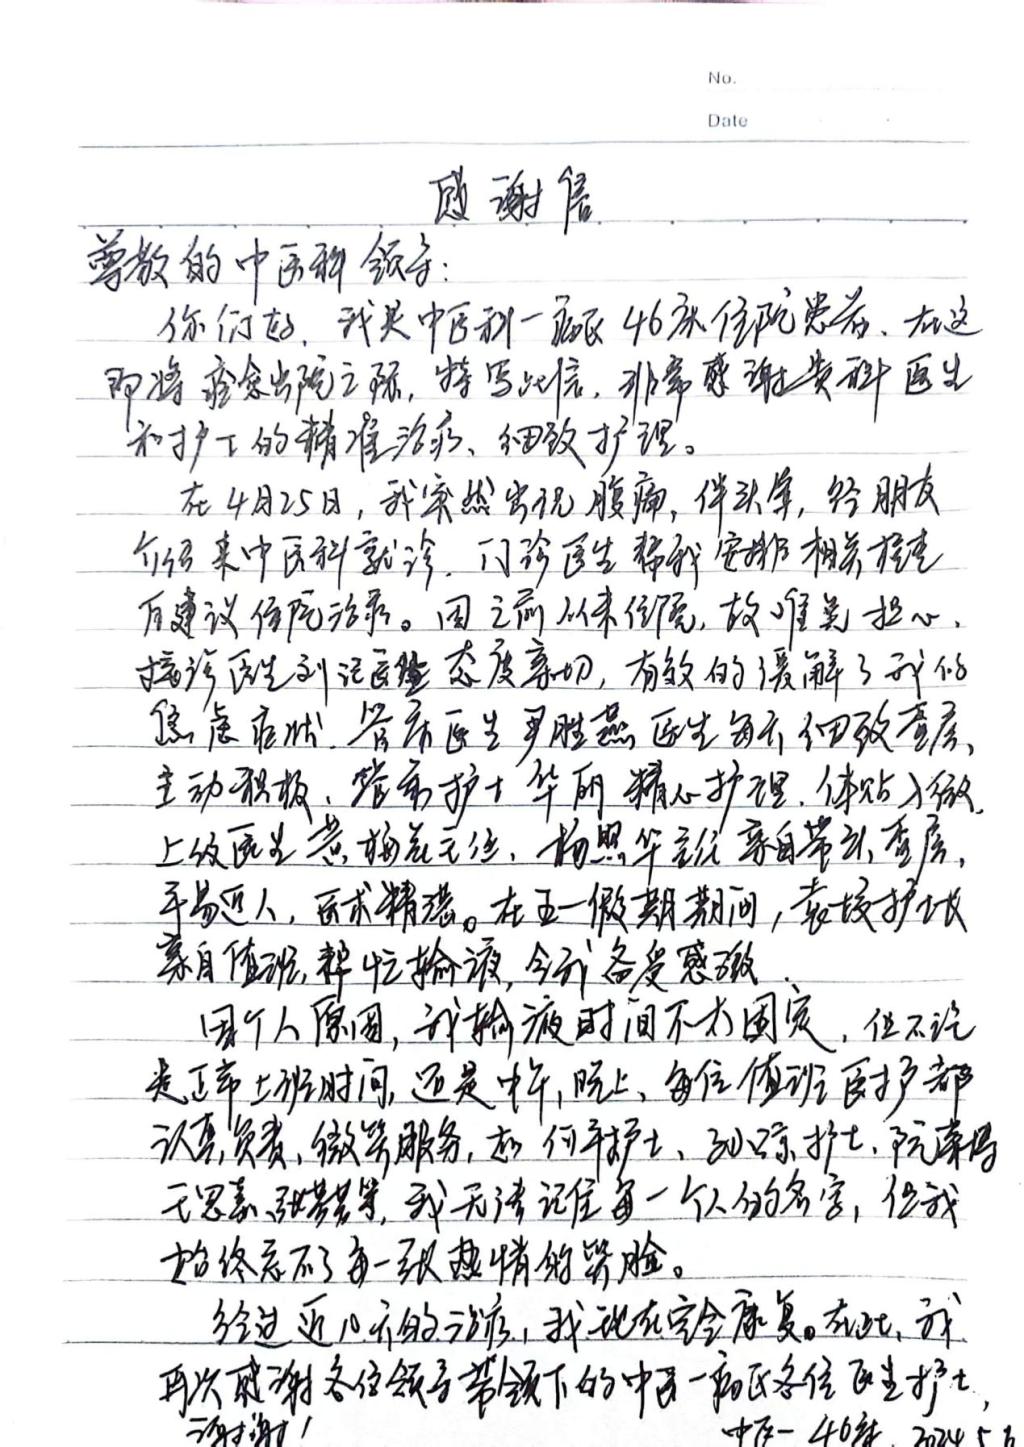 No.
Date
感谢信
尊敬的中医科领导：
你们好，我是中医科一病区46床住院患者，在这
即将痊愈出院之际，特写此信，非常感谢贵科医生
和护士的精准治疗、细致护理。
在4月25日，我突然出现腹痛，伴头晕，经朋友
介绍来中医科就诊，门诊医生帮我安排相关检查
后建议住院治疗。因之前从未住院，故难免担心，
接诊医生刘记医生态度亲切，有效的缓解了我的
焦虑症状，管床医生尹胜燕医生每天细致查房，
主动积极，管床护士华丽精心护理，体贴入微，
上级医生黄梅花主任、杨照华主任亲自带队查房，
平易近人，医术精湛。在五一假期期间，袁姣护士长
亲自值班，帮忙输液，令我备受感激。
因个人原因，我输液时间不太固定，但不论
是正常上班时间，还是中午，晚上，每位值班医护都
认真负责，微笑服务，如何平护士、护士、阮
王思嘉、张梦梦等，我无法记住每一个人的名字，但我
始终忘不了每一张热情的笑脸。
经过近10天的治疗，我现在完全康复。在此，我
再次感谢各位领导带领下的中医一病区各位医生护士，
谢谢！
中医一46床 2024.5.6